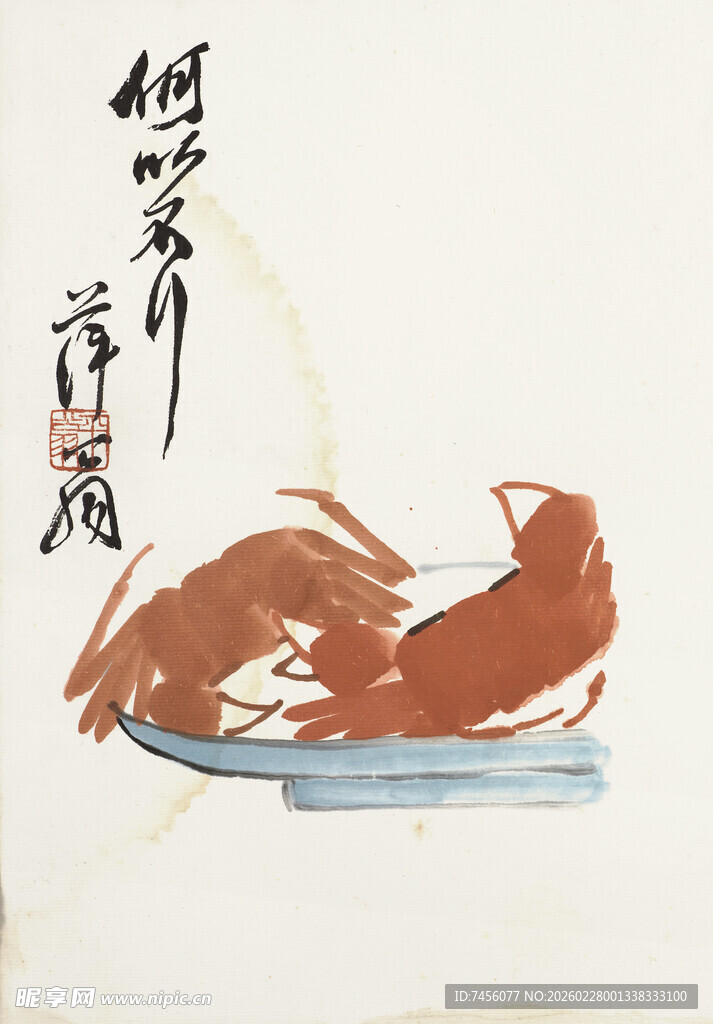 何以不行
萍翁
昵享网 www.nipic.cn
ID:7456077 NO:20260228001338333100